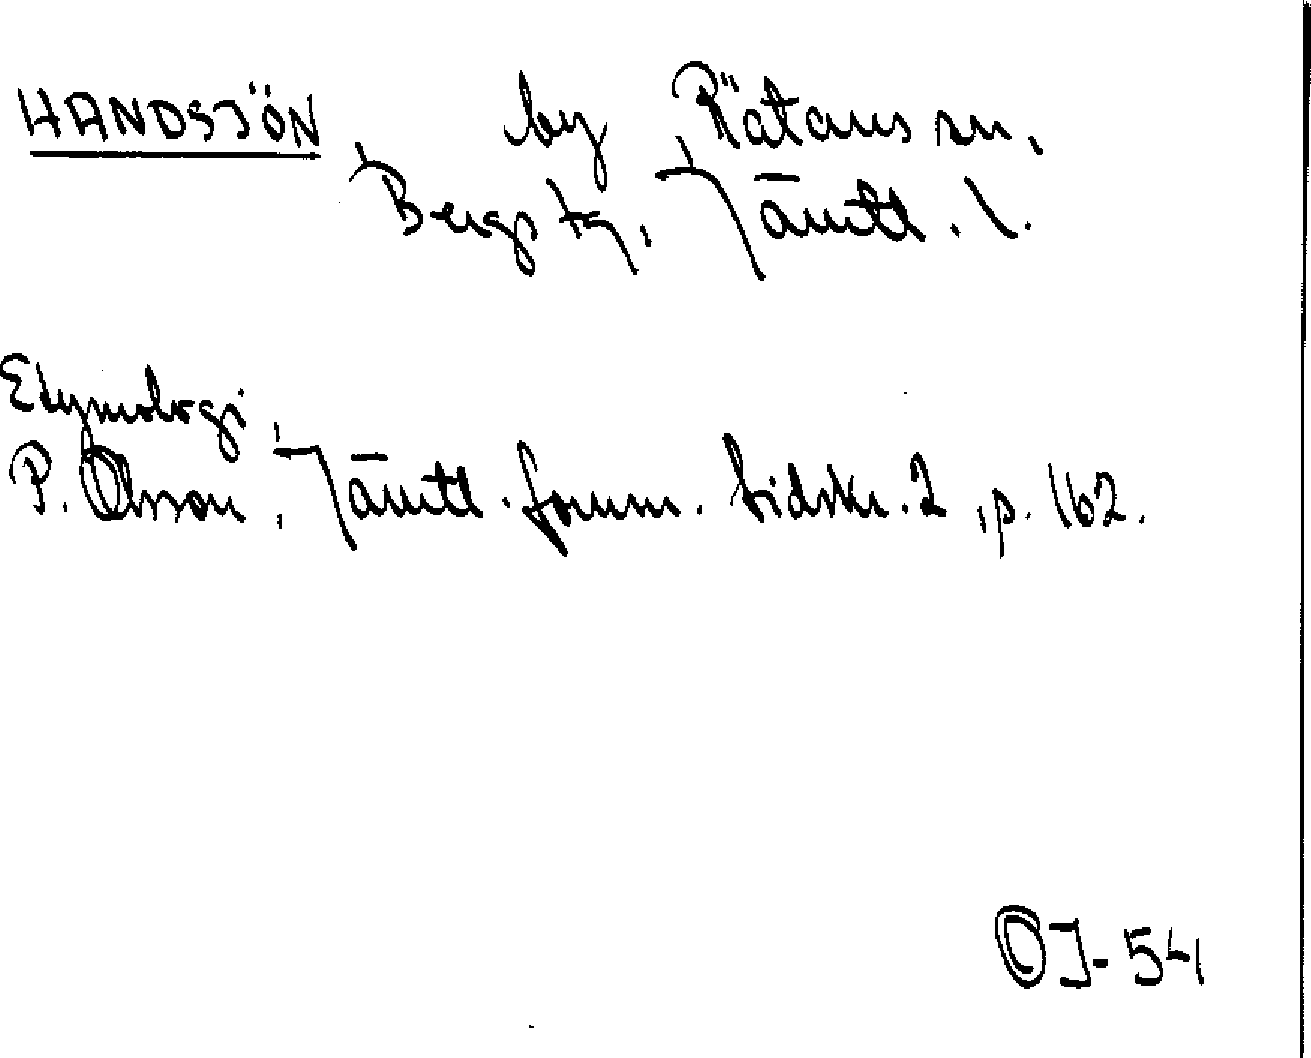 HANDSJÖN, by Rätans sn,
Bergs tg, Jämtl. l.
Etymologi,
P. Olsson, Jämtl. fornm. tidskr. 2, p. 162.
OJ-54